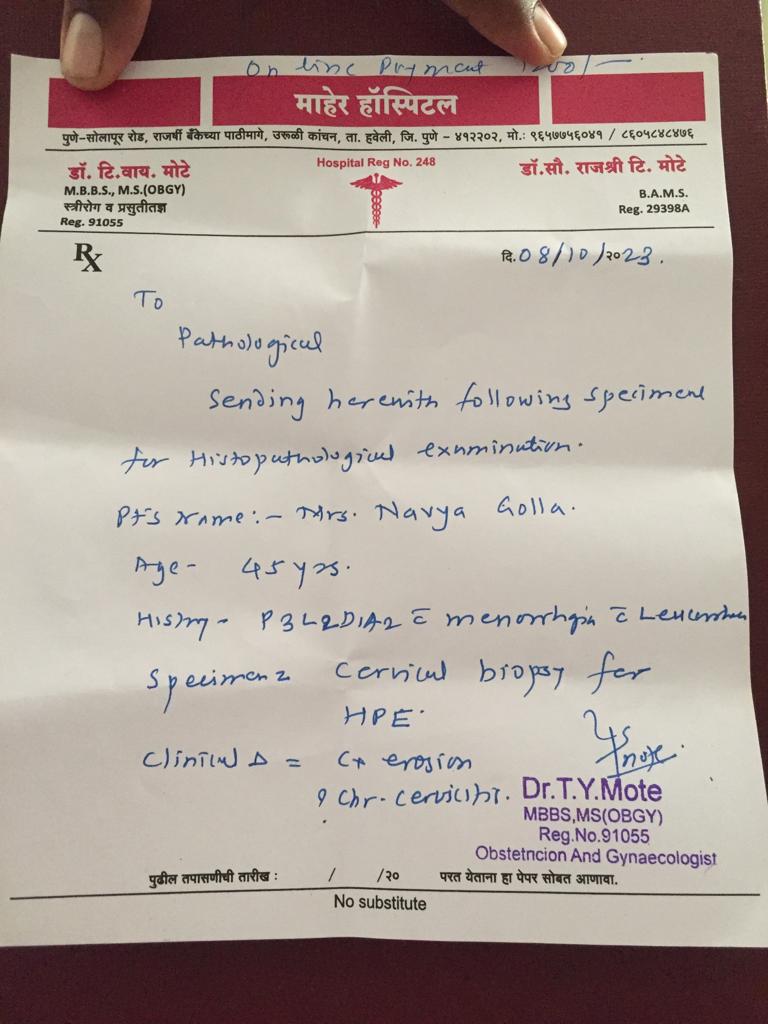 On line Payment 1200/-
माहेर हॉस्पिटल
पुणे-सोलापूर रोड, राजर्षी बँकेच्या पाठीमागे, उरूळी कांचन, ता. हवेली, जि. पुणे - ४१२२०२, मो.: ९६५७७५६०४१ / ८६०५४८४८७६
Hospital Reg No. 248
डॉ. टि.वाय. मोटे
M.B.B.S., M.S.(OBGY)
स्त्रीरोग व प्रसुतीतज्ञ
Reg. 91055
डॉ.सौ. राजश्री टि. मोटे
B.A.M.S.
Reg. 29398A
Rx
दि.08/10/२०23.
To
Pathological
Sending herewith following speciment
for Histopathological examination.
Pt's Name:- Mrs. Navya Golla.
Age- 45 yrs.
History- P3L2D1A2 c̄ menorrhgia c̄
Specimen = Cervical biopsy for
HPE.
Clinical Δ = Cx erosion
? Chr. Cervicitis.
Dr.T.Y.Mote
MBBS,MS(OBGY)
Reg.No.91055
Obstetncion And Gynaecologist
पुढील तपासणीची तारीख : / /२० परत येताना हा पेपर सोबत आणावा.
No substitute